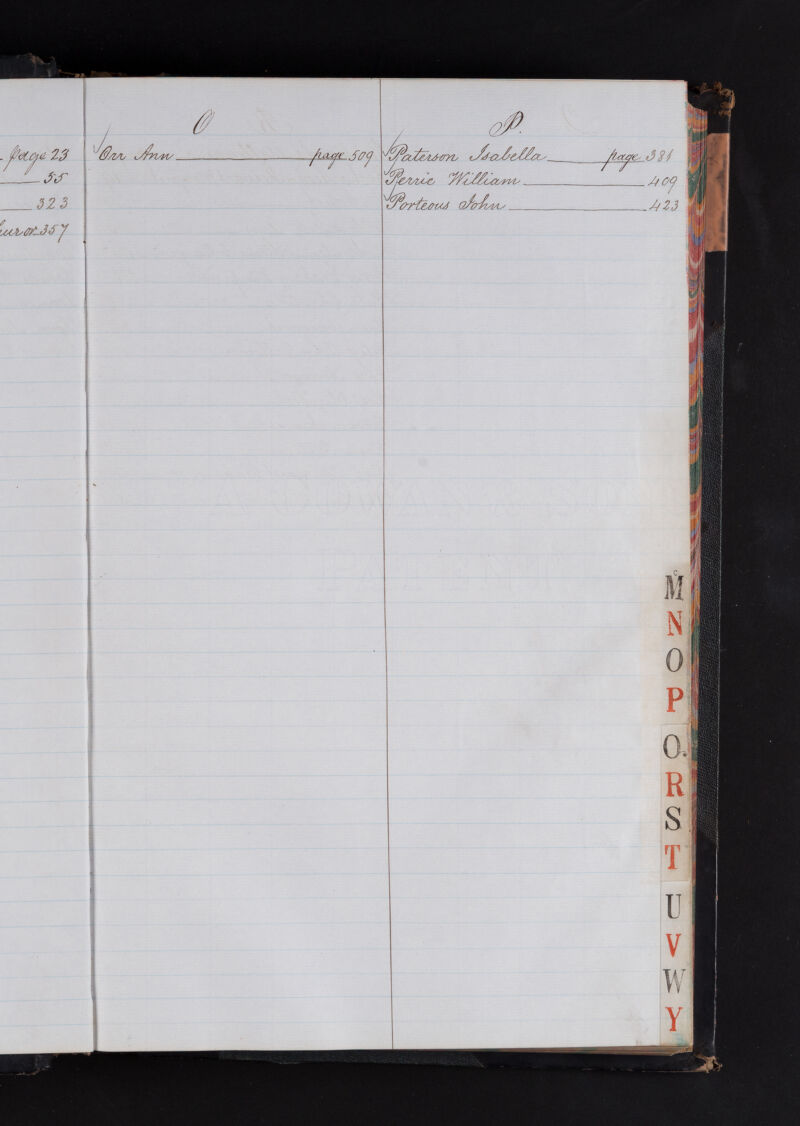 page 23
55
323
357
O
Orr Ann page 509
P.
Paterson Isabella page 381
Perrie William 409
Porteous John 423
Mc
N
O
P
Q.
R
S
T
U
V
W
Y